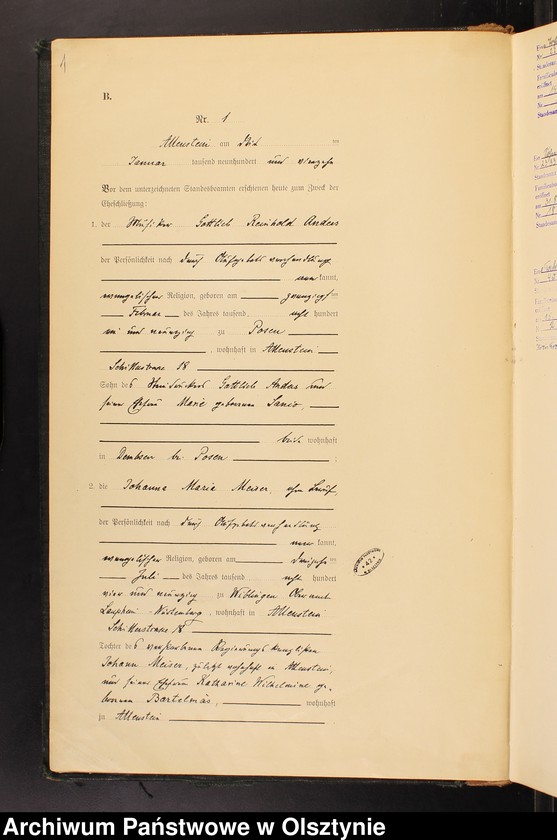 1
B.
Nr. 1
Allenstein am
Januar tausend neunhundert und vierzehn
Vor dem unterzeichneten Standesbeamten erschienen heute zum Zweck der
Eheschließung:
1. der Musiker Gottlieb Reinhold Anders
der Persönlichkeit nach durch Aufgebotsverhandlung
kannt,
evangelischer Religion, geboren am zwanzigsten
Februar des Jahres tausend acht hundert
und neunzig zu Posen
, wohnhaft in Allenstein
Schillerstrasse 18
Sohn des Gottlieb Anders und
seiner Ehefrau Marie geborenen
wohnhaft
in Dembsen bei Posen
2. die Johanna Maria Meiser, ohne Beruf,
der Persönlichkeit nach durch Aufgebotsverhandlung
kannt,
evangelischer Religion, geboren am
Juli des Jahres tausend acht hundert
vier und neunzig zu Wiblingen Oberamt
Laupheim Württemberg, wohnhaft in Allenstein
Schillerstrasse 18
Tochter des verstorbenen
Johann Meiser, zuletzt wohnhaft in Allenstein,
und seiner Ehefrau Katharine Wilhelmine ge-
borenen Bartelmäs, wohnhaft
zu Allenstein
Archiwum Państwowe w Olsztynie